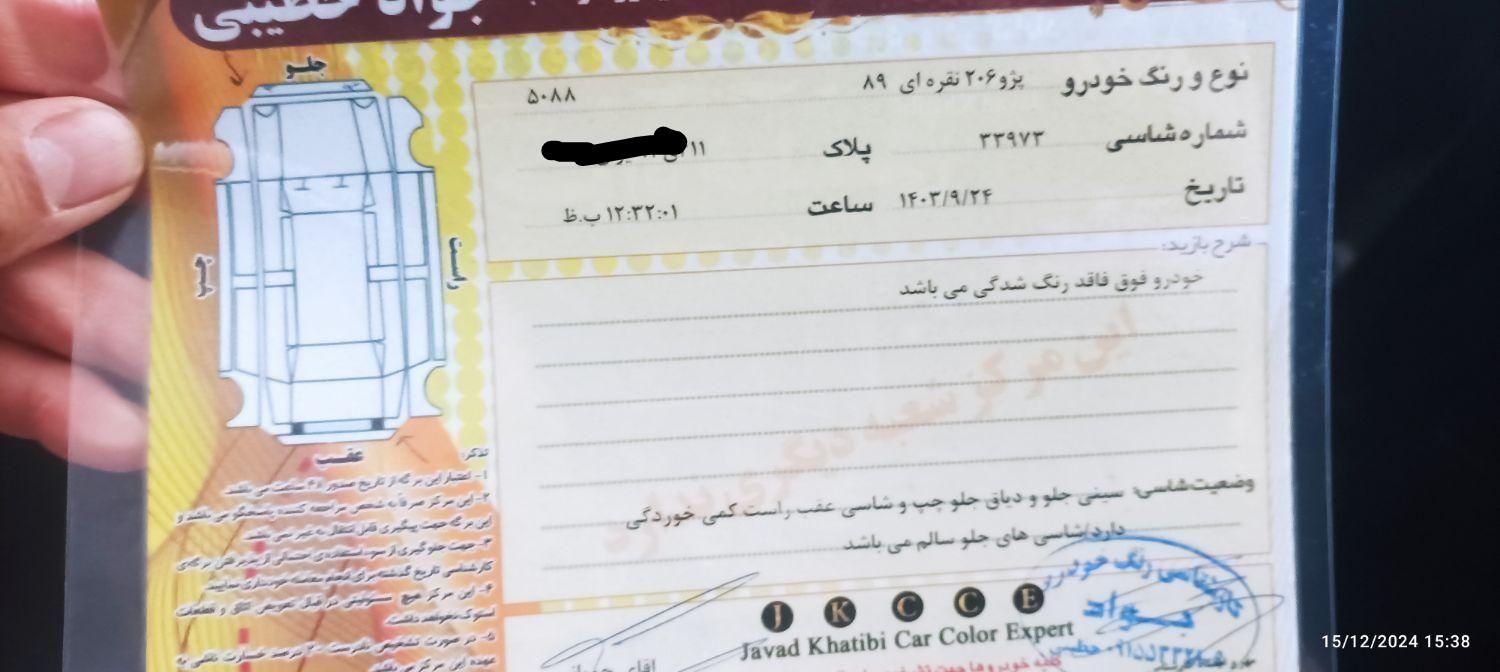 جواد خطیبی
نوع و رنگ خودرو پژو۲۰۶ نقره ای ۸۹ ۵۰۸۸
شماره شاسی ۳۳۹۷۳ پلاک ۱۱
تاریخ ۱۴۰۳/۹/۲۴ ساعت ۱۲:۳۲:۰۱ ب.ظ
شرح بازدید:
خودرو فوق فاقد رنگ شدگی می باشد
این مرکز شعبه دیگری ندارد
وضعیت شاسی: سینی جلو و دیاق جلو چپ و شاسی عقب راست کمی خوردگی
دارد/شاسی های جلو سالم می باشد
J K C C E
Javad Khatibi Car Color Expert
جلو
راست
چپ
عقب
تذکر:
۱- اعتبار این برگه از تاریخ صدور ۴۸ ساعت می باشد.
۲- این مرکز صرفاً به شخص مراجعه کننده پاسخگو می باشد و
این برگه جهت پیگیری قابل انتقال به غیر نمی باشد.
۳- جهت جلوگیری از سوء استفاده ی احتمالی از پذیرفتن برگه ی
کارشناسی تاریخ گذشته برای انجام معامله خودداری نمایید.
۴- این مرکز هیچ مسئولیتی در قبال تعویض اتاق و قطعات
استوک نخواهد داشت.
۵- در صورت تشخیص نادرست ۲۰ درصد خسارت ناشی به
عهده این مرکز می باشد.
کارشناسی رنگ خودرو
جواد
خطیبی
آقای
15/12/2024 15:38